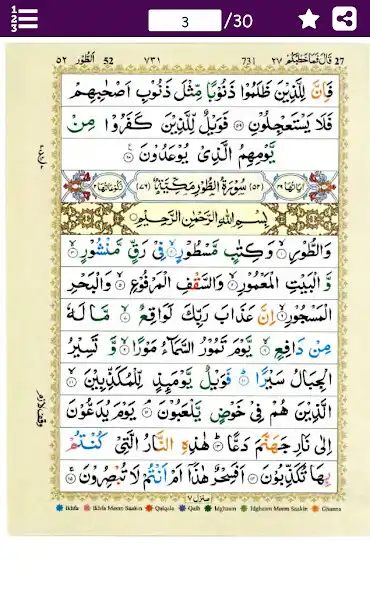 1
2
3
3
/30
٥٢ اَلطُّوْر 52 ٧٣١ 731 قَالَ فَمَا خَطْبُكُمْ ٢٧ 27
فَاِنَّ لِلَّذِيْنَ ظَلَمُوْا ذَنُوْبًا مِّثْلَ ذَنُوْبِ اَصْحٰبِهِمْ
فَلَا يَسْتَعْجِلُوْنِ ۝٥٩ فَوَيْلٌ لِّلَّذِيْنَ كَفَرُوْا مِنْ
يَّوْمِهِمُ الَّذِيْ يُوْعَدُوْنَ ۝٦٠
اٰيَاتُهَا ٤٩ (٥٢) سُوْرَةُ الطُّوْرِ مَكِّيَّةٌ (٧٦) رُكُوْعَاتُهَا ٢
بِسْمِ اللّٰهِ الرَّحْمٰنِ الرَّحِيْمِ
وَالطُّوْرِ ۝١ وَكِتٰبٍ مَّسْطُوْرٍ ۝٢ فِيْ رَقٍّ مَّنْشُوْرٍ ۝٣
وَّ الْبَيْتِ الْمَعْمُوْرِ ۝٤ وَالسَّقْفِ الْمَرْفُوْعِ ۝٥ وَالْبَحْرِ
الْمَسْجُوْرِ ۝٦ اِنَّ عَذَابَ رَبِّكَ لَوَاقِعٌ ۝٧ مَّا لَهٗ
مِنْ دَافِعٍ ۝٨ يَّوْمَ تَمُوْرُ السَّمَآءُ مَوْرًا ۝٩ وَّ تَسِيْرُ
الْجِبَالُ سَيْرًا ۝١٠ فَوَيْلٌ يَّوْمَئِذٍ لِّلْمُكَذِّبِيْنَ ۝١١
الَّذِيْنَ هُمْ فِيْ خَوْضٍ يَّلْعَبُوْنَ ۝١٢ يَوْمَ يُدَعُّوْنَ
اِلٰى نَارِ جَهَنَّمَ دَعًّا ۝١٣ هٰذِهِ النَّارُ الَّتِيْ كُنْتُمْ
بِهَا تُكَذِّبُوْنَ ۝١٤ اَفَسِحْرٌ هٰذَآ اَمْ اَنْتُمْ لَا تُبْصِرُوْنَ ۝١٥
منزل ٧
Ikhfa Ikhfa Meem Saakin Qalqala Qalb Idghaam Idghaam Meem Saakin Ghunna